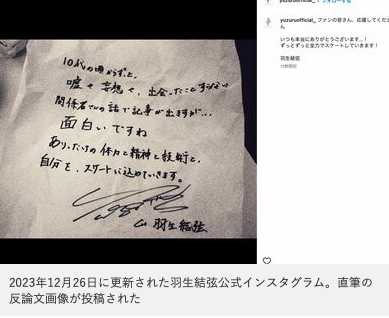 yuzuruofficial_
yuzuruofficial_ ファンの皆さん、応援してくださ
いつも本当にありがとうございます…！
ずっとずっと全力でスケートしていきます！
羽生結弦
10代の頃からずっと、
嘘や妄想や、出会ったことすらない
関係者さんの話で記事が出ますが…
面白いですね
ありったけの体力と精神と技術と、
自分を、スケートに込めていきます。
羽生結弦
2023年12月26日に更新された羽生結弦公式インスタグラム。直筆の
反論文画像が投稿された